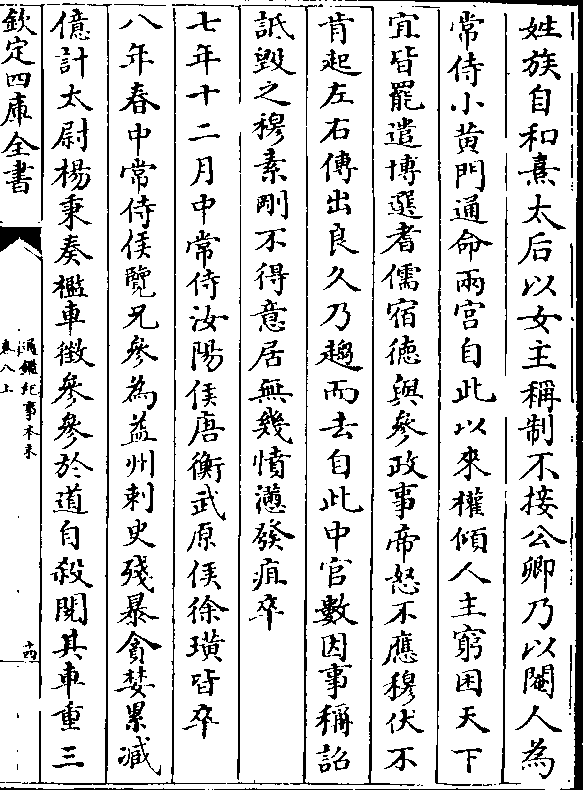 姓族自和熹太后以女主稱制不接公卿乃以閹人為
常侍小黄門通命兩宫自此以來權傾人主窮困天下
宜皆罷遣博選耆儒宿德與參政事帝怒不應穆伏不
肯起左右傳出良久乃趨而去自此中官數因事稱詔
詆毀之穆素剛不得意居無幾憤懣發疽卒
七年十二月中常侍汝陽侯唐衡武原侯徐璜皆卒
八年春中常侍侯覽兄參為益州刺史殘暴貪婪累减
億計太尉楊秉奏檻車徵參參於道自殺閱其車重三
欽定四庫全書
通鑑紀事本末
卷八上
十四